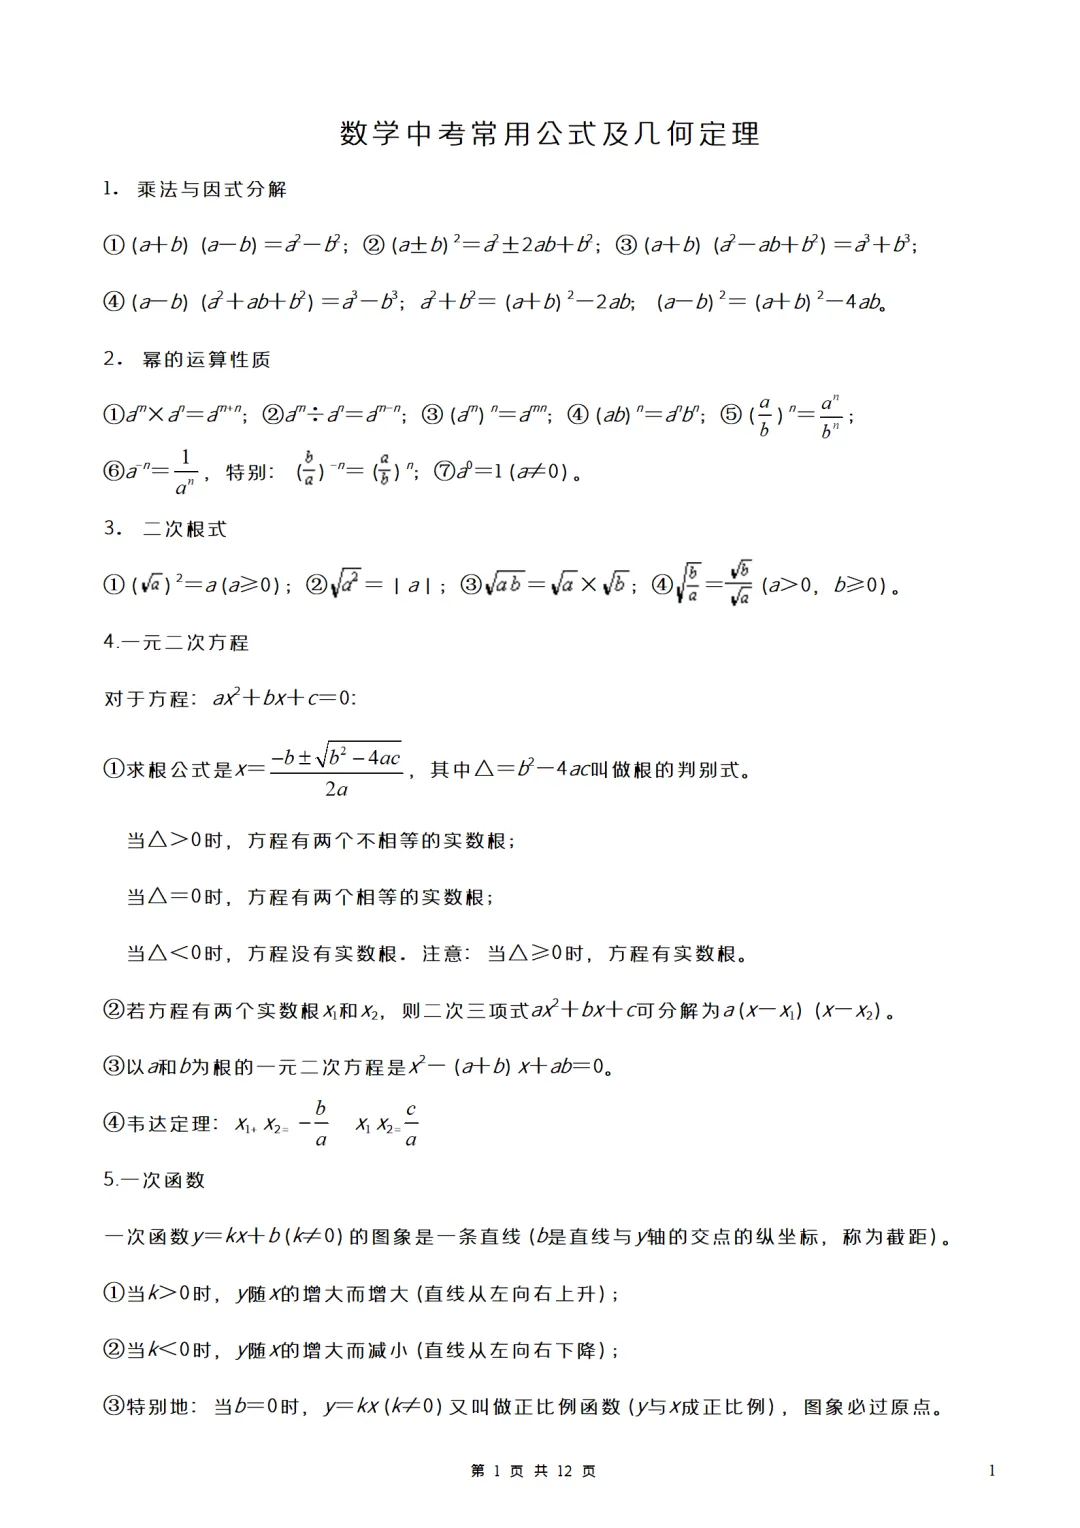 数学中考常用公式及几何定理
1. 乘法与因式分解
①(a+b)(a－b)=a²－b²；②(a±b)²=a²±2ab+b²；③(a+b)(a²－ab+b²)=a³+b³；
④(a－b)(a²+ab+b²)=a³－b³；a²+b²=(a+b)²－2ab；(a－b)²=(a+b)²－4ab。
2. 幂的运算性质
①aᵐ×aⁿ=aᵐ⁺ⁿ；②aᵐ÷aⁿ=aᵐ⁻ⁿ；③(aᵐ)ⁿ=aᵐⁿ；④(ab)ⁿ=aⁿbⁿ；⑤(a/b)ⁿ=aⁿ/bⁿ；
⑥a⁻ⁿ=1/aⁿ，特别：(b/a)⁻ⁿ=(a/b)ⁿ；⑦a⁰=1(a≠0)。
3. 二次根式
①(√a)²=a(a≥0)；②√a²=|a|；③√ab=√a×√b；④√(b/a)=√b/√a(a>0，b≥0)。
4.一元二次方程
对于方程：ax²+bx+c=0：
①求根公式是x=(-b±√(b²-4ac))/2a，其中△=b²－4ac叫做根的判别式。
当△>0时，方程有两个不相等的实数根；
当△=0时，方程有两个相等的实数根；
当△<0时，方程没有实数根．注意：当△≥0时，方程有实数根。
②若方程有两个实数根x₁和x₂，则二次三项式ax²+bx+c可分解为a(x－x₁)(x－x₂)。
③以a和b为根的一元二次方程是x²－(a+b)x+ab=0。
④韦达定理：x₁₊ x₂₌ -b/a x₁ x₂₌c/a
5.一次函数
一次函数y=kx+b(k≠0)的图象是一条直线(b是直线与y轴的交点的纵坐标，称为截距)。
①当k>0时，y随x的增大而增大(直线从左向右上升)；
②当k<0时，y随x的增大而减小(直线从左向右下降)；
③特别地：当b=0时，y=kx(k≠0)又叫做正比例函数(y与x成正比例)，图象必过原点。
第 1 页 共 12 页 1